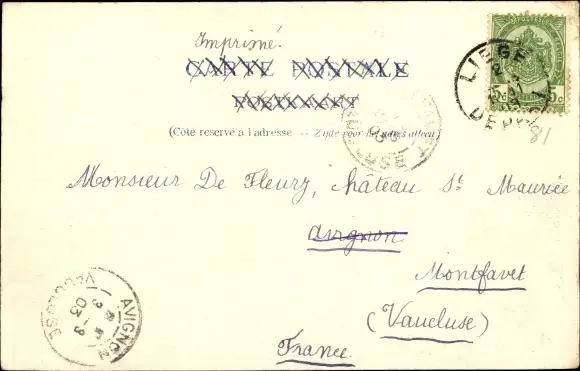 Imprimé.
CARTE POSTALE
POSTKAART
(Côté réservé a l'adresse — Zijde voor het adres alleen)
5c 5c
LIEGE
DEPART
81
Monsieur De Fleury, château St Maurice
avignon
Montfavet
(Vaucluse)
France
AVIGNON
VAUCLUSE
03